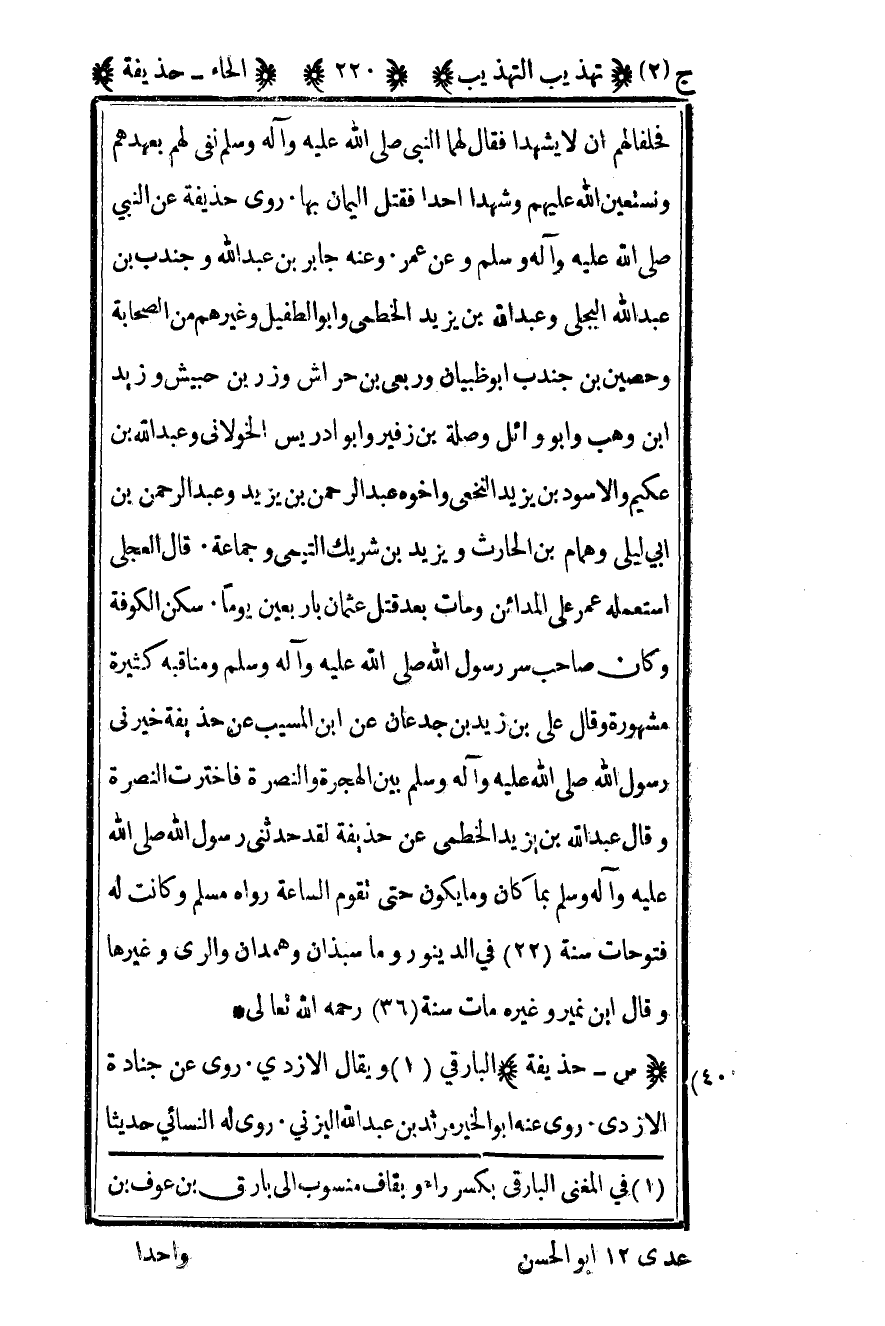 ج (٢) ﴿ تهذيب التهذيب ﴾ ﴿ ٢٢٠ ﴾ ﴿ الحاء ـ حذيفة ﴾
فحلفا لهم ان لا يشهدا فقال لهما النبى صلى الله عليه وآله وسلم نفى لهم بعهدهم
ونستعين الله عليهم وشهدا احدا فقتل اليمان بها · روى حذيفة عن النبي
صلى الله عليه وآله وسلم وعن عمر · وعنه جابر بن عبدالله وجندب بن
عبدالله البجلى وعبدالله بن يزيد الخطمى وابو الطفيل وغيرهم من الصحابة
وحصين بن جندب ابوظبيان وربعى بن حراش وزر بن حبيش وزيد
ابن وهب وابو وائل وصلة بن زفير وابو ادريس الخولانى وعبدالله بن
عكيم والاسود بن يزيد النخعى واخوه عبدالرحمن بن يزيد وعبدالرحمن بن
ابي ليلى وهمام بن الحارث ويزيد بن شريك التيمى وجماعة · قال العجلى
استعمله عمر على المدائن ومات بعد قتل عثمان باربعين يوماً · سكن الكوفة
وكان صاحب سر رسول الله صلى الله عليه وآله وسلم ومناقبه كثيرة
مشهورة وقال على بن زيد بن جدعان عن ابن المسيب عن حذيفة خيرنى
رسول الله صلى الله عليه وآله وسلم بين الهجرة والنصرة فاخترت النصرة
وقال عبدالله بن يزيد الخطمى عن حذيفة لقد حدثنى رسول الله صلى الله
عليه وآله وسلم بما كان وما يكون حتى تقوم الساعة رواه مسلم وكانت له
فتوحات سنة (٢٢) في الدينور وماسبذان وهمدان والرى وغيرها
وقال ابن نمير وغيره مات سنة (٣٦) رحمه الله تعالى *
﴿ س ـ حذيفة ﴾ البارقي (١) ويقال الازدي · روى عن جنادة
(٤٠
الازدى · روى عنه ابو الخير مرثد بن عبدالله اليزني · روى له النسائي حديثا
(١) في المغنى البارقى بكسر راء وبقاف منسوب الى بارق بن عوف بن
عدى ١٢ ابو الحسن
واحدا